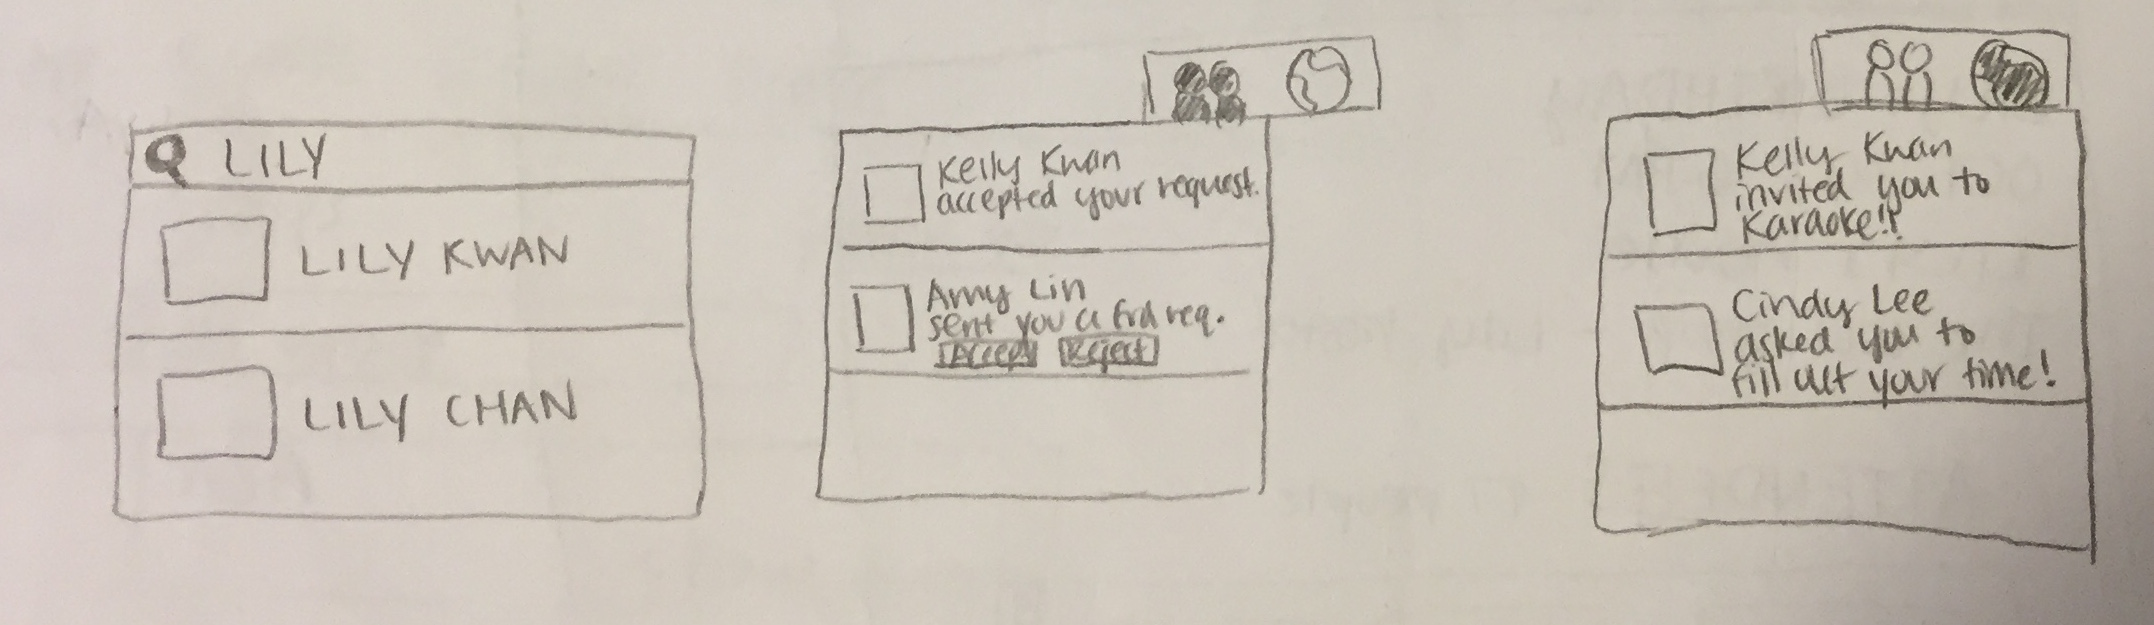 LILY
LILY KWAN
LILY CHAN
Kelly Kwan
accepted your request.
Amy Lin
sent you a frd req.
Accept Reject
Kelly Kwan
invited you to
Karaoke!!
Cindy Lee
asked you to
fill out your time!